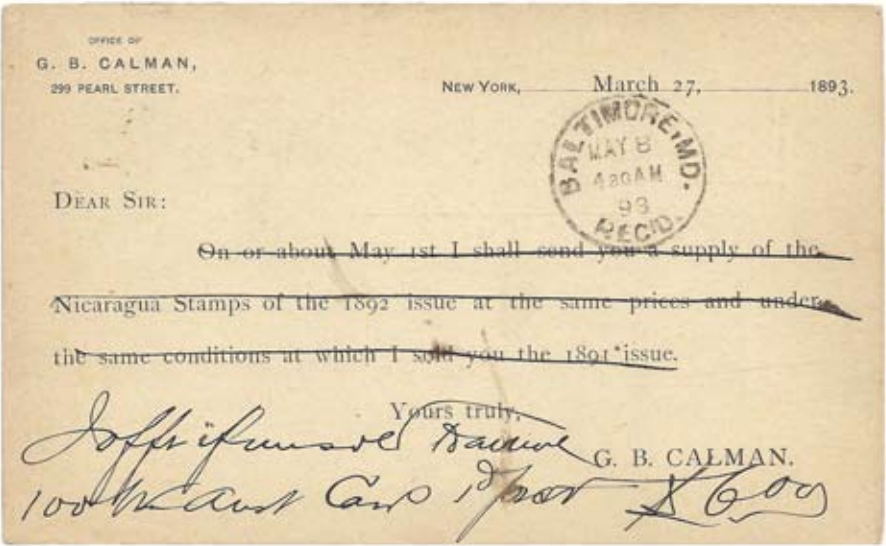 OFFICE OF
G. B. CALMAN,
299 PEARL STREET.
NEW YORK, March 27, 1893.
BALTIMORE, MD.
MAY 8
4 30 AM
93
REC'D.
DEAR SIR:
On or about May 1st I shall send you a supply of the
Nicaragua Stamps of the 1892 issue at the same prices and under
the same conditions at which I sold you the 1891 issue.
Yours truly,
I offr if unsold
G. B. CALMAN.
100